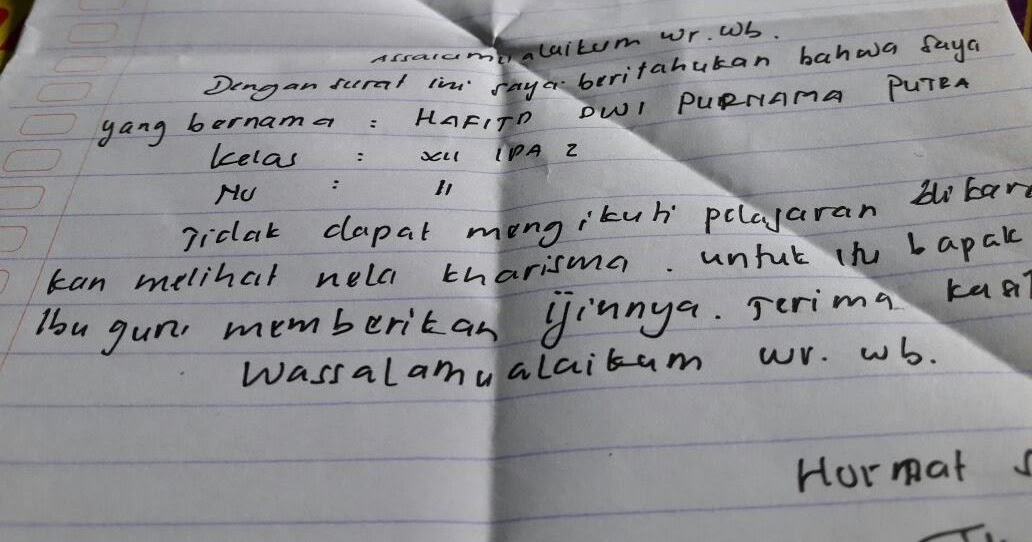 Assalamualaikum wr. wb.
Dengan surat ini saya beritahukan bahwa saya
yang bernama : HAFITD DWI PURNAMA PUTRA
Kelas : XII IPA 2
NU : 11
Tidak dapat mengikuti pelajaran dikare
kan melihat nela kharisma. untuk itu bapak
Ibu guru memberikan ijinnya. Terima kasi
Wassalamualaikum wr. wb.
Hormat s